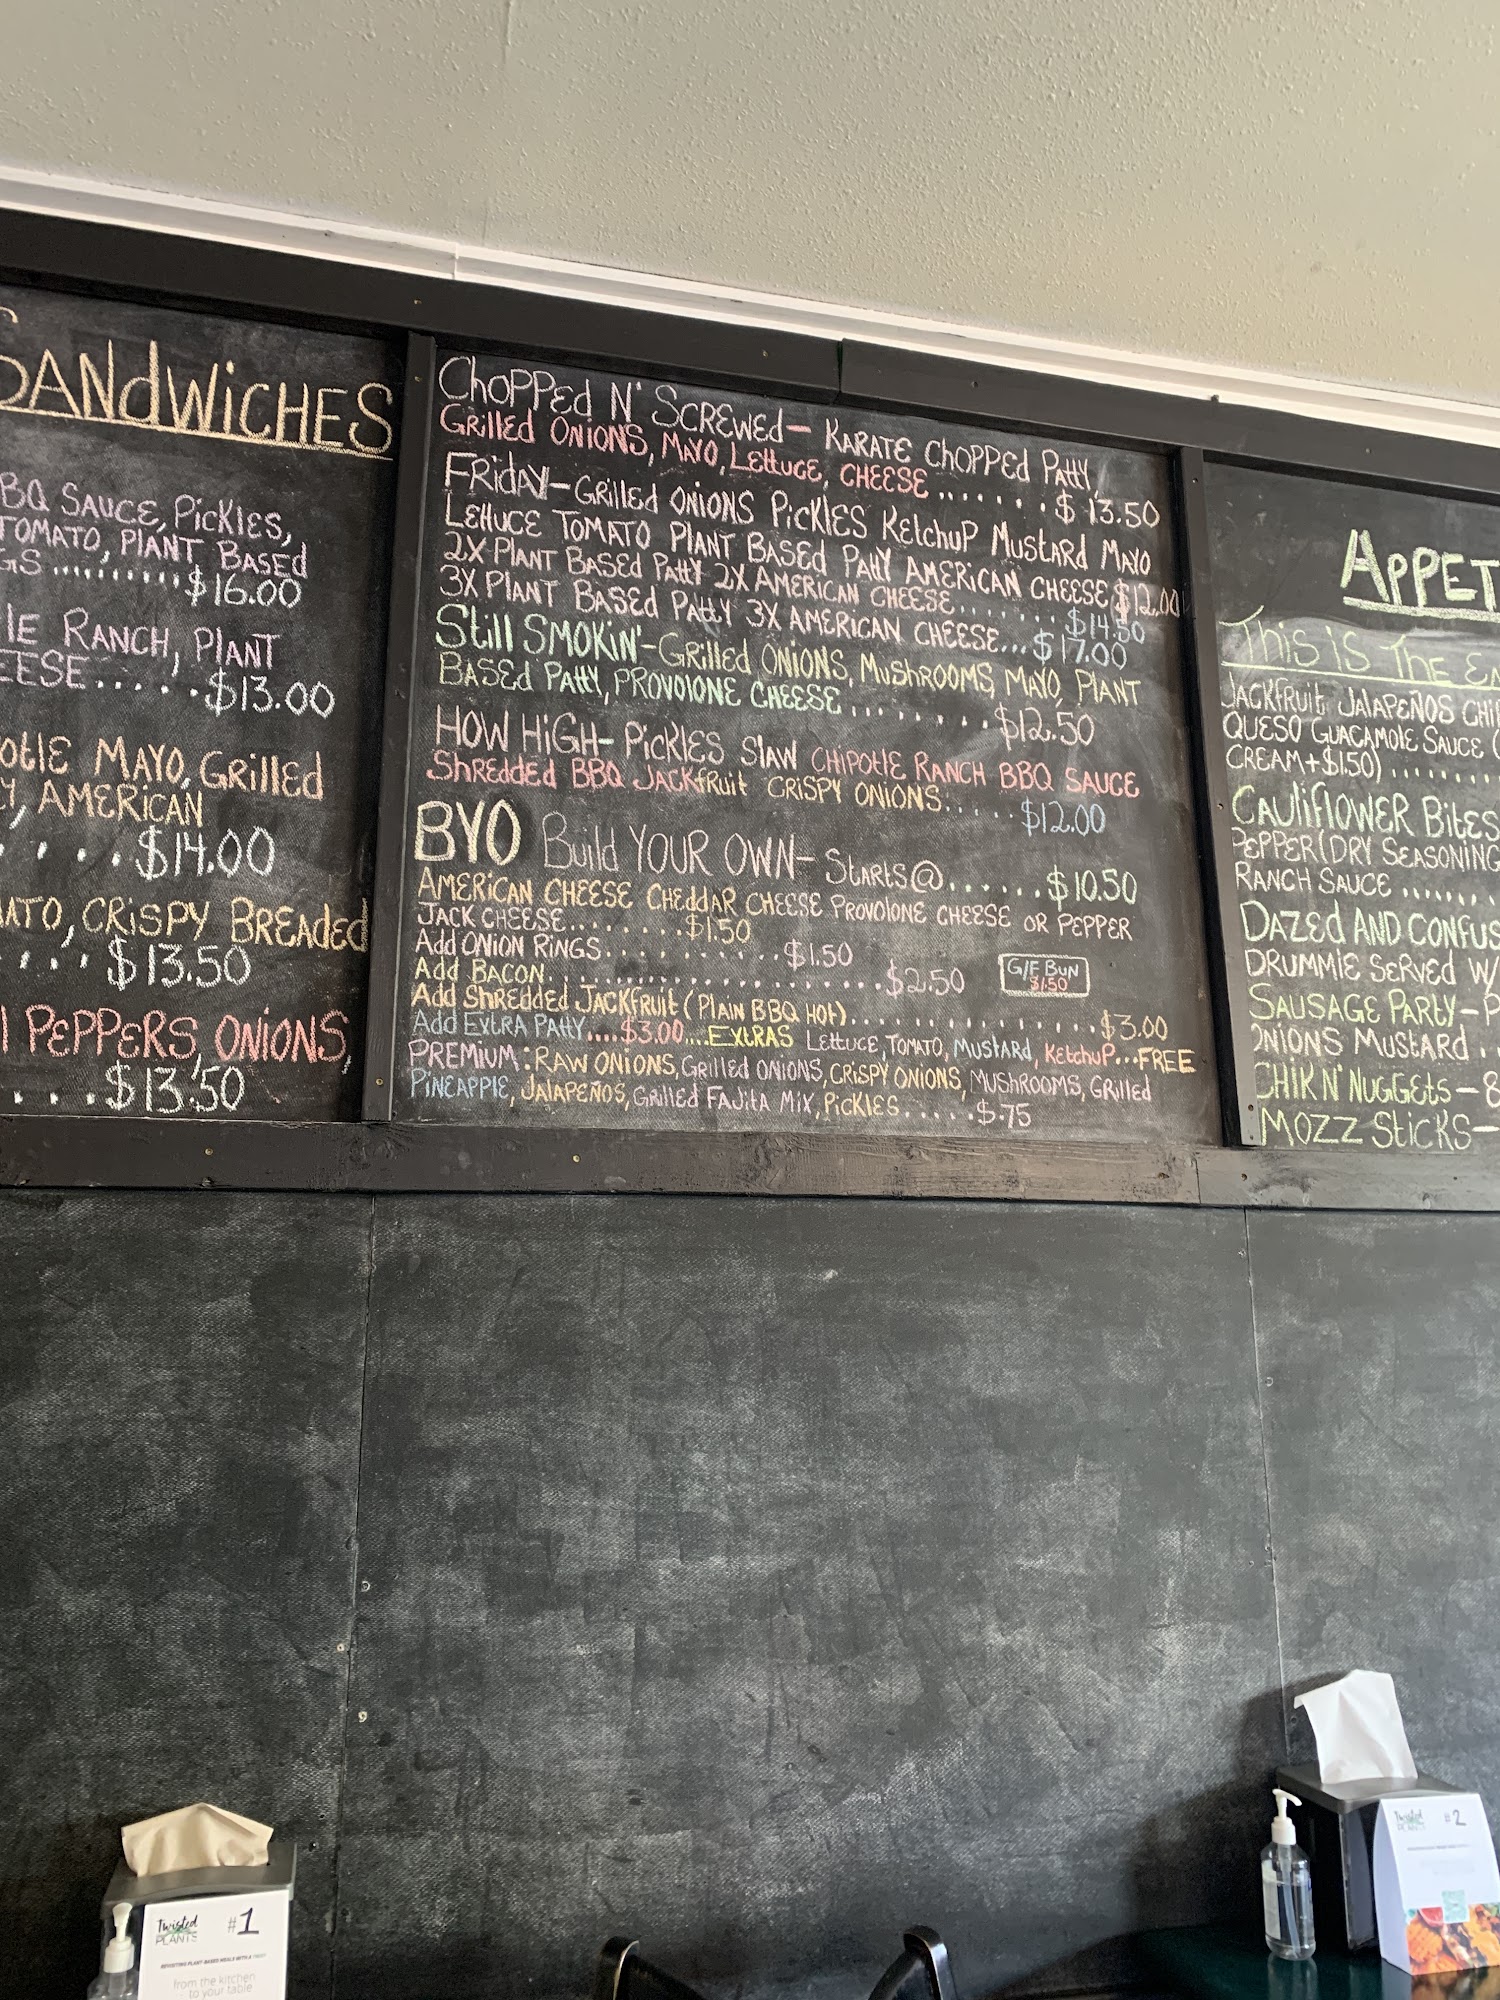 SANDWICHES
BQ SAUCE, PICKLES,
TOMATO, PLANT BASED
GS ............ $16.00
LE RANCH, PLANT
EESE...... $13.00
POTLE MAYO, GRILLED
Y, AMERICAN
..... $14.00
ATO, CRISPY BREADED
.... $13.50
PEPPERS, ONIONS,
.... $13.50
CHOPPED N' SCREWED- KARATE CHOPPED PATTY,
GRILLED ONIONS, MAYO, LETTUCE, CHEESE ........ $13.50
FRIDAY- GRILLED ONIONS PICKLES KETCHUP MUSTARD MAYO
LETTUCE TOMATO PLANT BASED PATTY AMERICAN CHEESE $12.00
2X PLANT BASED PATTY 2X AMERICAN CHEESE....... $14.50
3X PLANT BASED PATTY 3X AMERICAN CHEESE... $17.00
STILL SMOKIN'- GRILLED ONIONS, MUSHROOMS, MAYO, PLANT
BASED PATTY, PROVOLONE CHEESE ......... $12.50
HOW HIGH- PICKLES SLAW CHIPOTLE RANCH BBQ SAUCE
SHREDDED BBQ JACKFRUIT CRISPY ONIONS..... $12.00
BYO BUILD YOUR OWN- STARTS@...... $10.50
AMERICAN CHEESE CHEDDAR CHEESE PROVOLONE CHEESE OR PEPPER
JACK CHEESE......... $1.50
ADD ONION RINGS........... $1.50
ADD BACON................... $2.50
G/F BUN
$1.50
ADD SHREDDED JACKFRUIT (PLAIN BBQ HOT)............... $3.00
ADD EXTRA PATTY..... $3.00.... EXTRAS LETTUCE, TOMATO, MUSTARD, KETCHUP... FREE
PREMIUM: RAW ONIONS, GRILLED ONIONS, CRISPY ONIONS, MUSHROOMS, GRILLED
PINEAPPLE, JALAPEÑOS, GRILLED FAJITA MIX, PICKLES..... $.75
APPET
THIS IS THE EN
JACKFRUIT JALAPEÑOS CHI
QUESO GUACAMOLE SAUCE (
CREAM+$1.50) ........
CAULIFLOWER BITES
PEPPER (DRY SEASONING
RANCH SAUCE ......
DAZED AND CONFUS
DRUMMIE SERVED W/
SAUSAGE PARTY- P
ONIONS MUSTARD ..
CHIK N' NUGGETS- 8
MOZZ STICKS-
Twisted
PLANTS
#1
REVISITING PLANT-BASED MEALS WITH A TWIST
from the kitchen
to your table
Twisted
PLANTS
#2